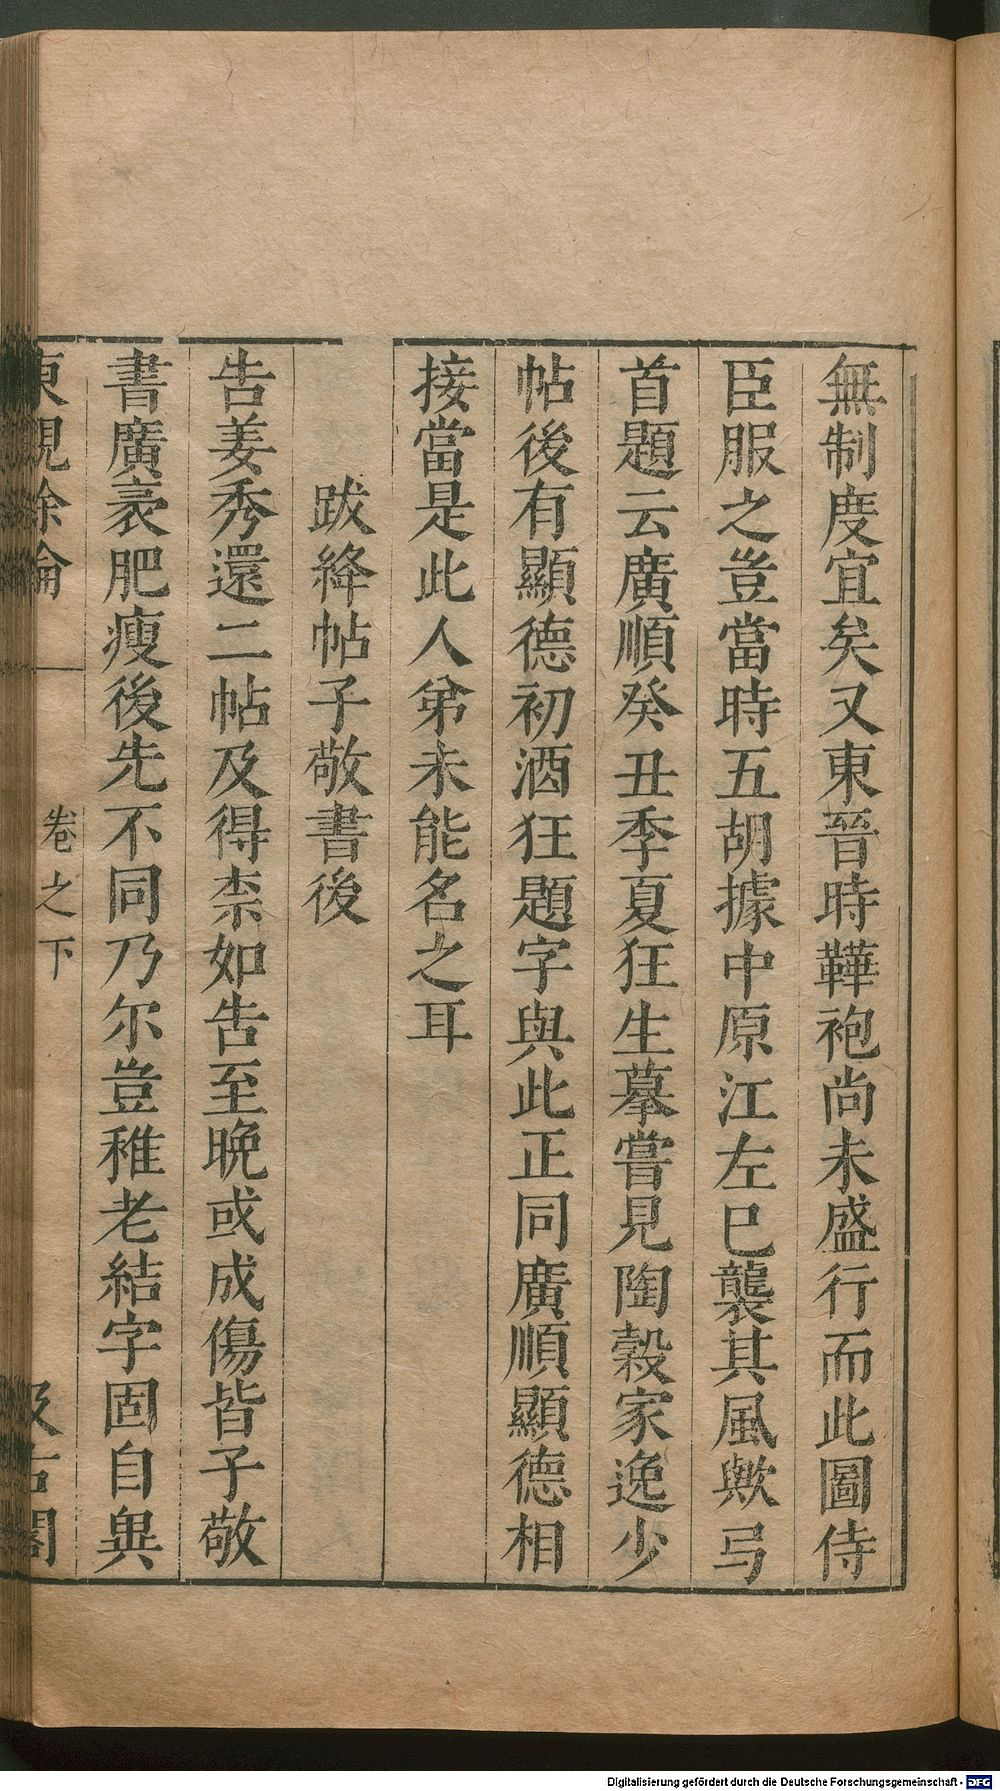 無制度宜矣又東晉時鞾袍尚未盛行而此圖侍
臣服之豈當時五胡據中原江左巳襲其風歟弓
首題云廣順癸丑季夏狂生摹嘗見陶穀家逸少
帖後有顯德初酒狂題字與此正同廣順顯德相
接當是此人弟未能名之耳
跋絳帖子敬書後
告姜秀還二帖及得柰如告至晩或成傷皆子敬
書廣袤肥瘦後先不同乃尔豈稚老結字固自異
東觀餘論
卷之下
汲古閣
Digitalisierung gefördert durch die Deutsche Forschungsgemeinschaft - DFG